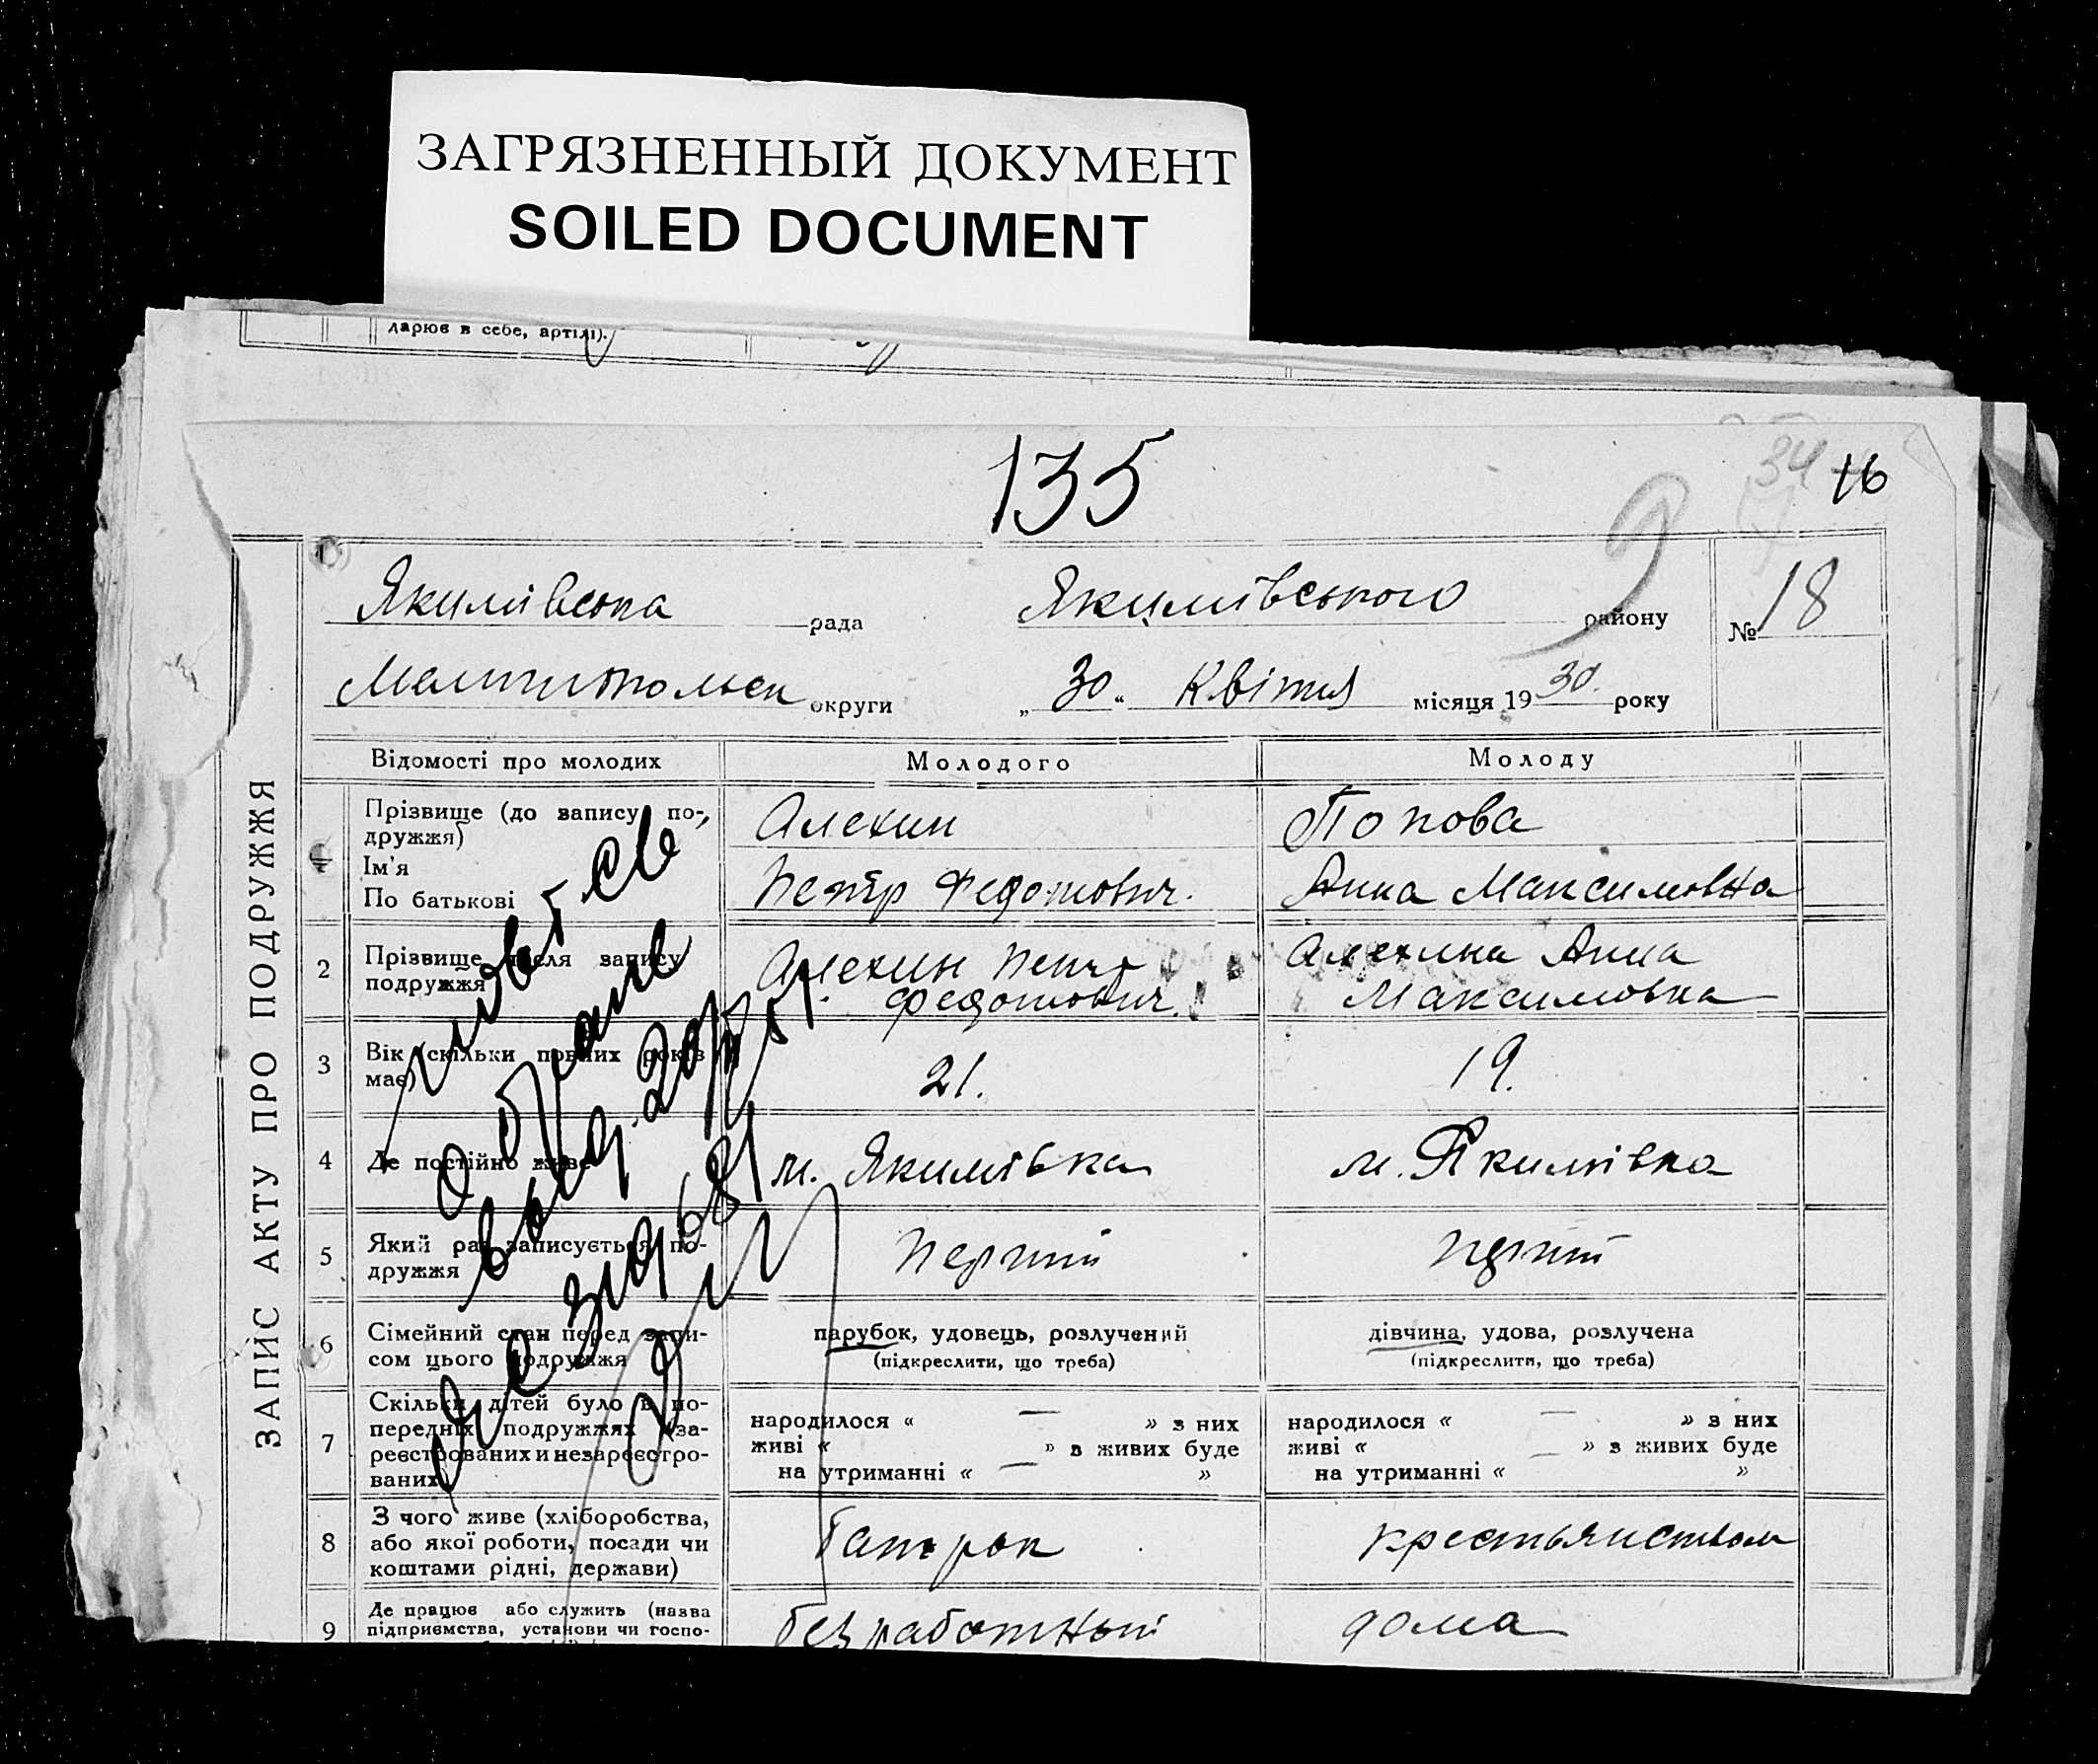 ЗАГРЯЗНЕННЫЙ ДОКУМЕНТ
SOILED DOCUMENT
дарює в себе, артілі).
135
34 16
Якимівська рада Якимівського району № 18
Мелитопольск округи „ 30 “ Квітня місяця 19 30. року
ЗАПИС АКТУ ПРО ПОДРУЖЖЯ
Відомості про молодих Молодого Молоду
Прізвище (до запису по- Алехин Попова
дружжя)
Ім'я Петр Федотович. Анна Максимовна
По батькові
2 Прізвище після запису Алехин Петр Алехина Анна
подружжя Федотович. Максимовна
3 Вік (скільки повних років 21. 19.
має)
4 Де постійно живе м. Якимівка м. Якимівка
5 Який раз записується по- Перший перший
дружжя
6 Сімейний стан перед запи- парубок, удовець, розлучений дівчина, удова, розлучена
сом цього подружжя (підкреслити, що треба) (підкреслити, що треба)
7 Скільки дітей було в по- народилося “ — » з них народилося “ — » з них
передніх подружжях (за- живі “ » з живих буде живі “ — » з живих буде
реєстрованих и незареєстро- на утриманні “ — » на утриманні “ »
ваних)
8 З чого живе (хліборобства, Батрак крестьянством
або якої роботи, посади чи
коштами рідні, держави)
9 Де працює або служить (назва безработный дома
підприємства, установи чи госпо-